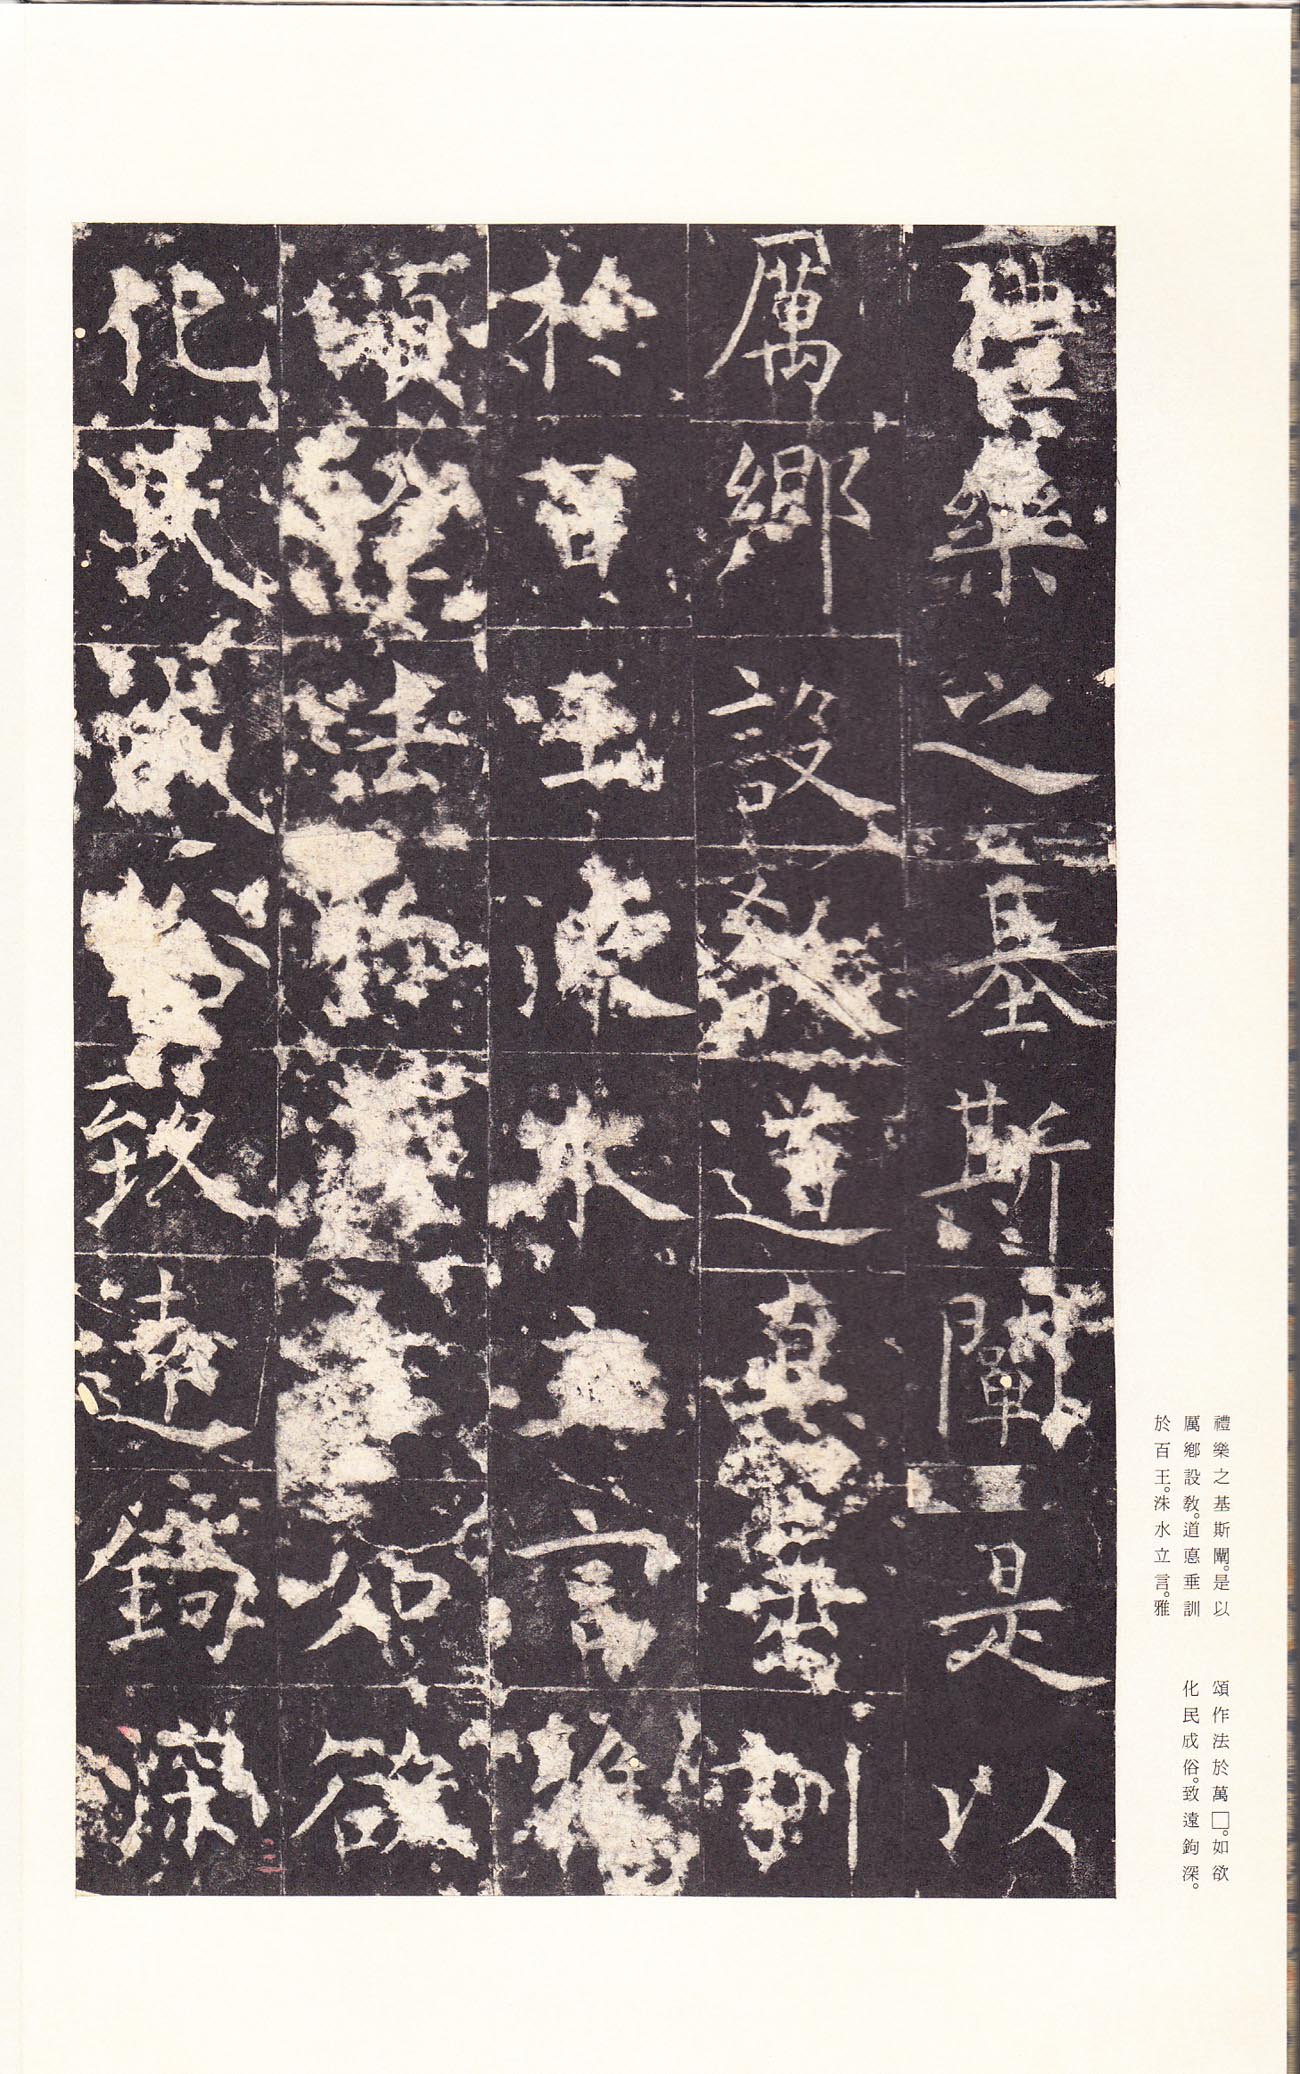 禮樂之基斯闡是以
厲鄉設教道悳垂訓
於百王洙水立言雅
頌作法於萬□如欲
化民成俗致遠鉤深
三
禮樂之基斯闡。是以
厲鄕設敎。道悳垂訓
於百王。洙水立言。雅
頌作法於萬□。如欲
化民成俗。致遠鉤深。